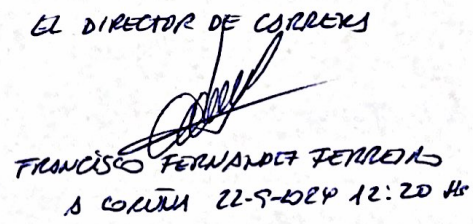 EL DIRECTOR DE CARRERA
FRANCISCO FERNANDEZ FERREIRO
A CORUÑA 22-9-2024 12:20 Hs